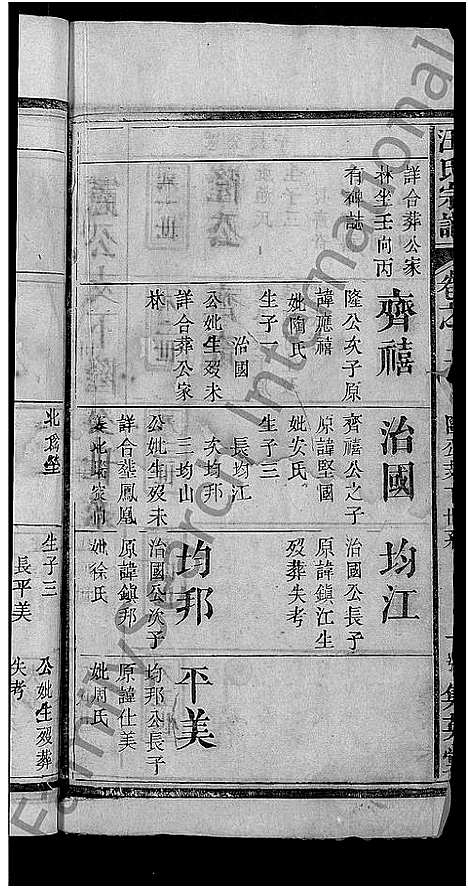 汪氏宗譜
詳合葬公家
林坐壬向丙
有碑誌
齊禧
隆公次子原
諱應禧
妣陶氏
生子一
治國
公妣生歿未
詳合葬公家
林
治國
齊禧公之子
原諱堅國
妣安氏
生子三
長均江
次均邦
三均山
公妣生歿未
詳合葬鳳凰
均江
治國公長子
原諱鎮江生
歿葬失考
均邦
治國公次子
原諱鎮邦
妣徐氏
平美
均邦公長子
原諱仕美
妣周氏
生子三
長平美
公妣生歿葬
失考
FamilySearch International